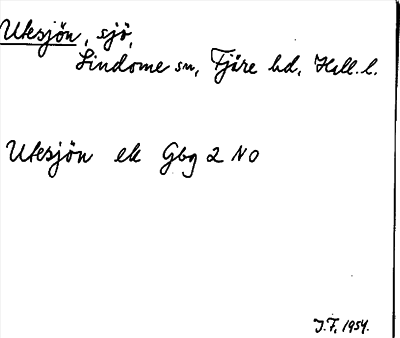 Utesjön, sjö,
Lindome sn, Fjäre hd, Hall. l.
Utesjön ek Gbg 2 NO
J.F. 1954.